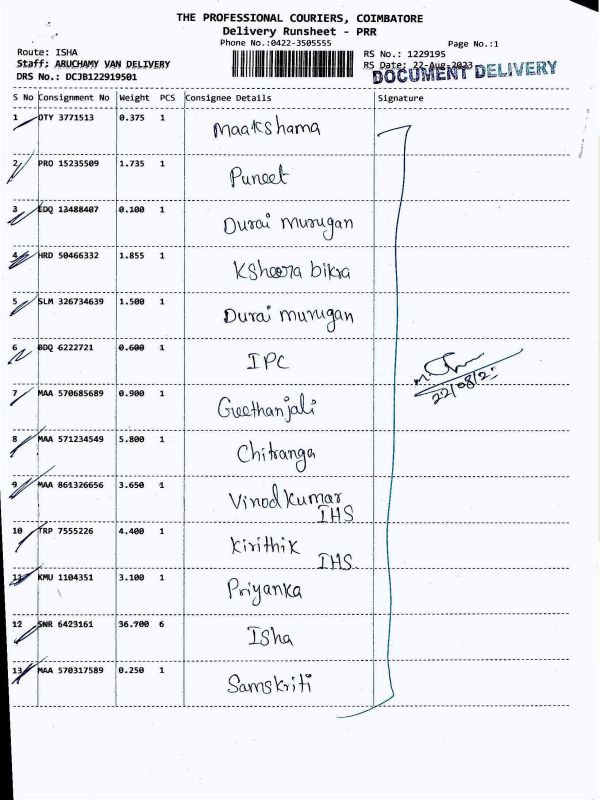 THE PROFESSIONAL COURIERS, COIMBATORE
Delivery Runsheet - PRR
Phone No.:0422-3505555
Page No.:1
Route: ISHA
RS No.: 1229195
Staff: ARUCHAMY VAN DELIVERY
RS Date: 22-Aug-2023
DOCUMENT DELIVERY
DRS No.: DCJB122919501
S No Consignment No Weight PCS Consignee Details Signature
1 OTY 3771513 0.375 1 Maakshama
2 PRO 15235509 1.735 1 Puneet
3 EDQ 13488407 0.100 1 Durai murugan
4 HRD 50466332 1.855 1 Ksheera bikra
5 SLM 326734639 1.500 1 Durai murugan
6 BDQ 6222721 0.600 1 IPC
22/08/2
7 MAA 570685689 0.900 1 Geethanjali
8 MAA 571234549 5.800 1 Chitranga
9 MAA 861326656 3.650 1 Vinod kumar
IHS
10 TRP 7555226 4.400 1 Kirithik
IHS
11 KMU 1104351 3.100 1 Priyanka
12 SNR 6423161 36.700 6 Isha
13 MAA 570317589 0.250 1 Samskriti